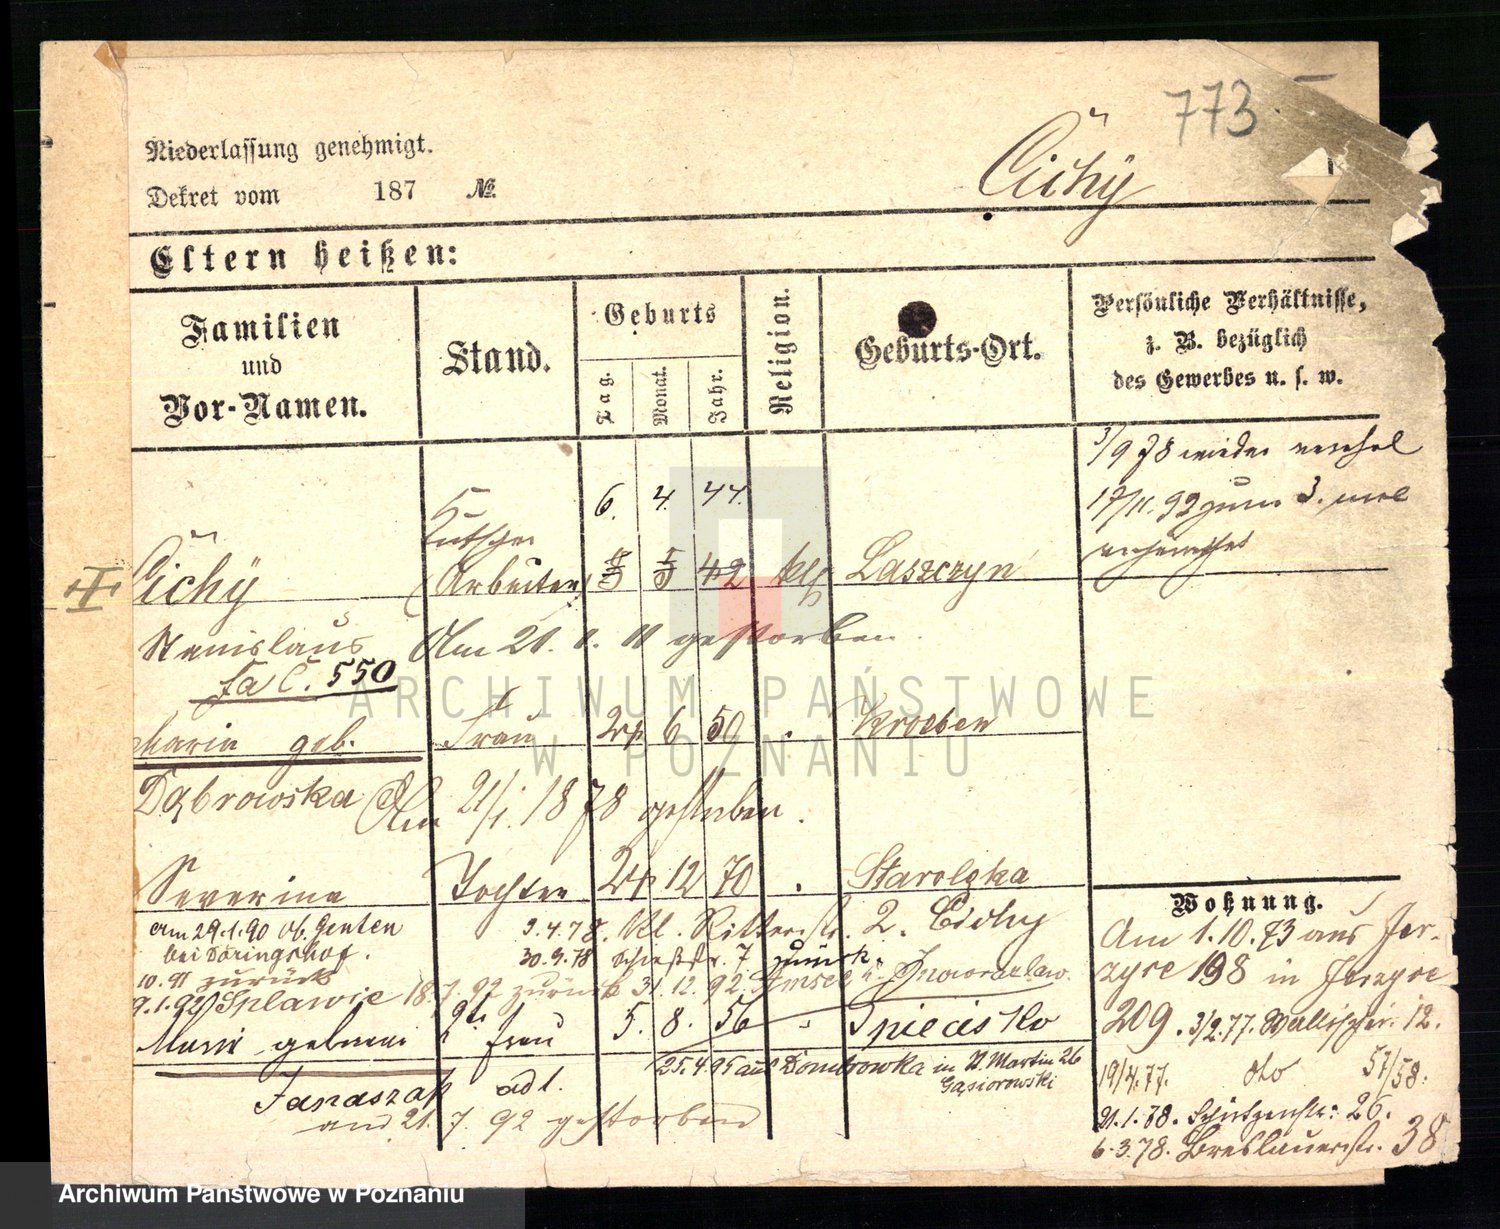 773.
Niederlassung genehmigt.
Dekret vom 187 №
Cichÿ
Eltern heißen:
Familien und Vor-Namen.
Stand.
Geburts
Tag. Monat. Jahr.
Religion.
Geburts-Ort.
Persönliche Verhältnisse,
z. B. bezüglich
des Gewerbes u. s. w.
3/9 78 wieder
17/11. 92 zum 3. mal
verheirathet
6. 4. 44.
Kutscher
Cichÿ (Arbeiter) 5 42 kth Laszczyn
Stanislaus Am 20. gestorben
fa C. 550
Maria geb. Frau 24 6 50 . Kroeben
Dąbrowska Am 21/1. 1878 gestorben.
Severina Tochter 24 12 70 . Starolęka
am 29.1.90 ob. Genten
bei Döringshof.
3.4.78. Kl. Ritterstr. 2. Cichy
30.9.78 Schießstr. 7 zurück.
10.91 zurück
9.1.92 Splawie 18.7.92 zurück 31.12.92. Amsee u. Inowrazlaw.
Marie geborne 2te Frau 5. 8. 56 " Spiecisko
Janaszak adl.
25.4.95 aus Dombrowka in St Martin 26
Gąsiorowski
am 21.7.92 gestorben
Wohnung.
Am 1.10.73 aus Jer-
zyce 198 in Jerzyce
209. 3/2.77. Wallischei. 12.
19/4.77. dto 57/58.
21.1.78. Schützenstr: 26.
6.3.78. Breslauerstr. 38
ARCHIWUM PAŃSTWOWE
W POZNANIU
Archiwum Państwowe w Poznaniu